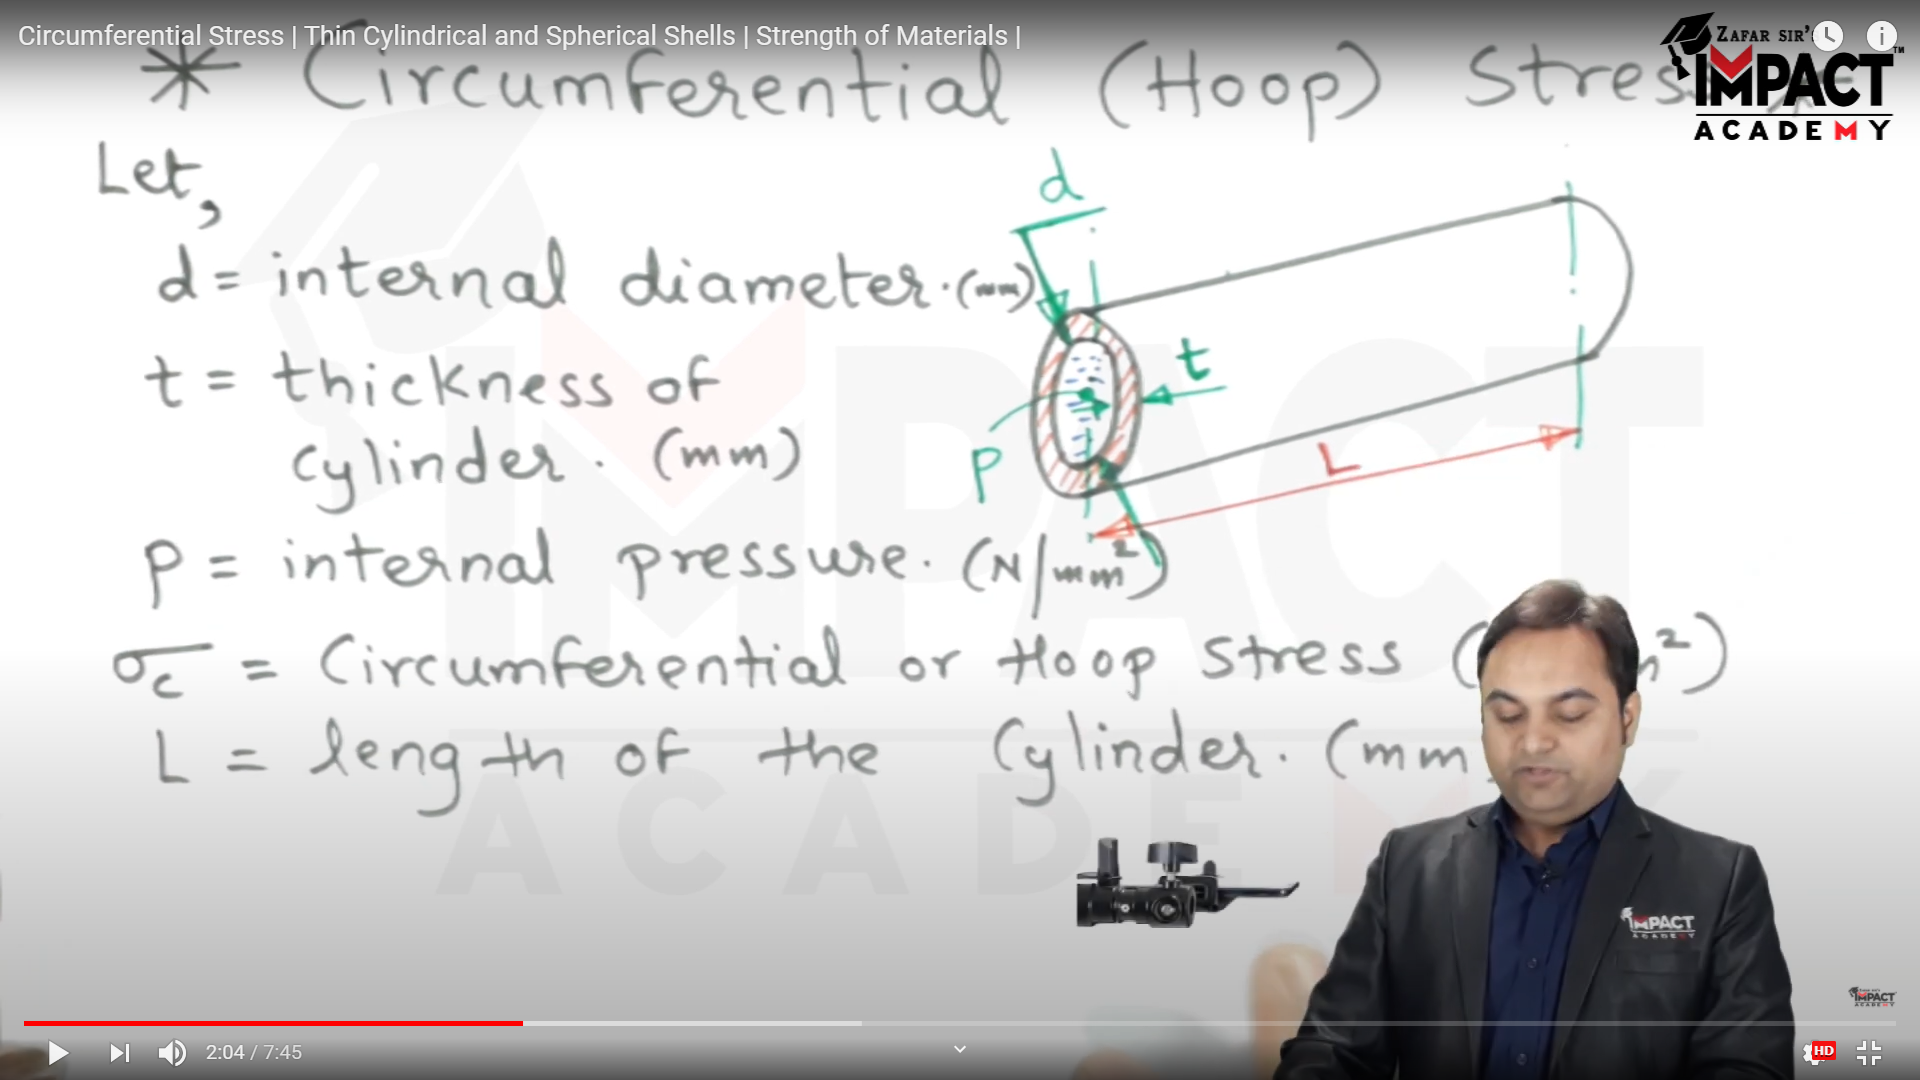 Circumferential Stress | Thin Cylindrical and Spherical Shells | Strength of Materials |
ZAFAR SIR'S
IMPACT
ACADEMY
TM
* Circumferential (Hoop) Stress
Let,
d
d = internal diameter. (mm)
t = thickness of
cylinder. (mm)
t
P
L
P = internal pressure. (N/mm²)
σc = Circumferential or Hoop Stress (
m²)
L = length of the Cylinder. (mm
IMPACT
ACADEMY
IMPACT
ACADEMY
IMPACT
ACADEMY
2:04 / 7:45
HD